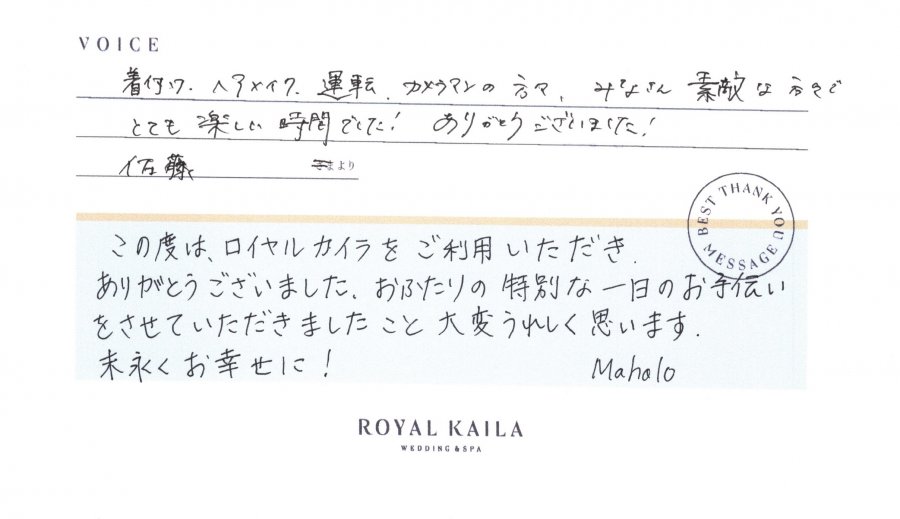 VOICE
着付け、ヘアメイク、運転、カメラマンの方々、みなさん素敵な方々で
とても楽しい時間でした! ありがとうございました!
佐藤 さまより
BEST THANK YOU MESSAGE
この度は、ロイヤルカイラをご利用いただき、
ありがとうございました、おふたりの特別な一日のお手伝い
をさせていただきましたこと大変うれしく思います.
末永くお幸せに! Mahalo
ROYAL KAILA
WEDDING & SPA